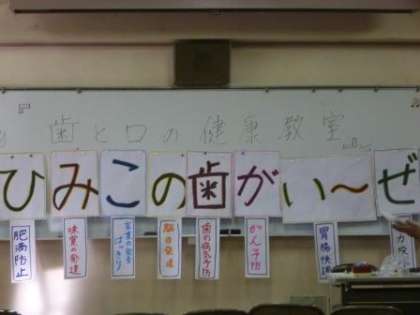 歯と口の健康教室
ひみこの歯がい～ぜ
肥満防止
味覚の発達
言葉の発音
はっきり
脳の発達
歯の病気予防
がん予防
胃腸快調